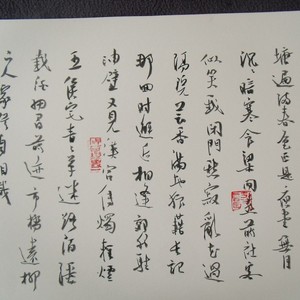 塘遍滿春色正是夜堂無月
沉沉暗寒食梁間燕前社客
似笑我閉門愁寂亂花過
隔院芸香滿地狼藉長記
那回時邂逅相逢郊外駐
油壁又見漢宮傳燭輕煙
五侯宅青青草迷路陌強
載酒細尋前迹市橋遠柳
下人家猶自相識